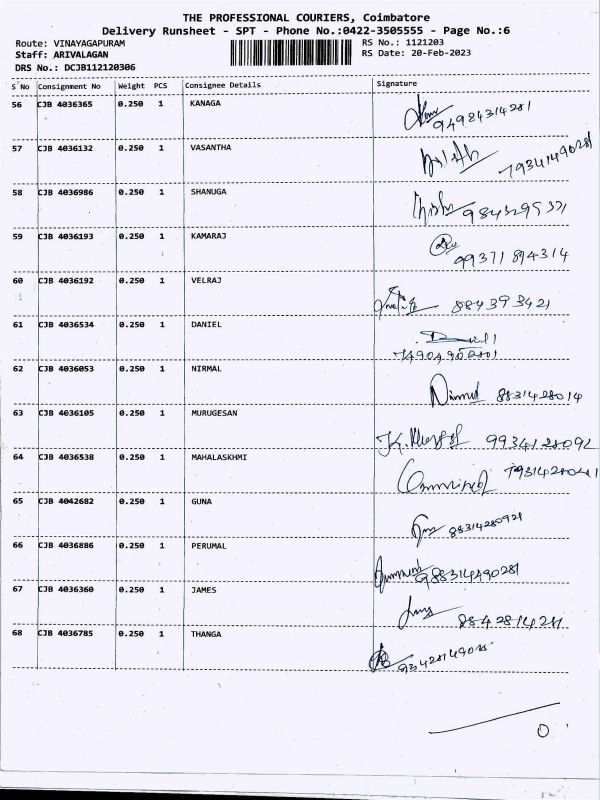 THE PROFESSIONAL COURIERS, Coimbatore
Delivery Runsheet - SPT - Phone No.:0422-3505555 - Page No.:6
Route: VINAYAGAPURAM
RS No.: 1121203
Staff: ARIVALAGAN
RS Date: 20-Feb-2023
DRS No.: DCJB112120306
S No Consignment No Weight PCS Consignee Details Signature
56 CJB 4036365 0.250 1 KANAGA
57 CJB 4036132 0.250 1 VASANTHA
58 CJB 4036986 0.250 1 SHANUGA
59 CJB 4036193 0.250 1 KAMARAJ
60 CJB 4036192 0.250 1 VELRAJ 884393421
61 CJB 4036534 0.250 1 DANIEL
62 CJB 4036053 0.250 1 NIRMAL Nirmal 8831428014
63 CJB 4036105 0.250 1 MURUGESAN 9934128092
64 CJB 4036538 0.250 1 MAHALASKHMI
65 CJB 4042682 0.250 1 GUNA 88314280921
66 CJB 4036886 0.250 1 PERUMAL
67 CJB 4036360 0.250 1 JAMES
68 CJB 4036785 0.250 1 THANGA
0